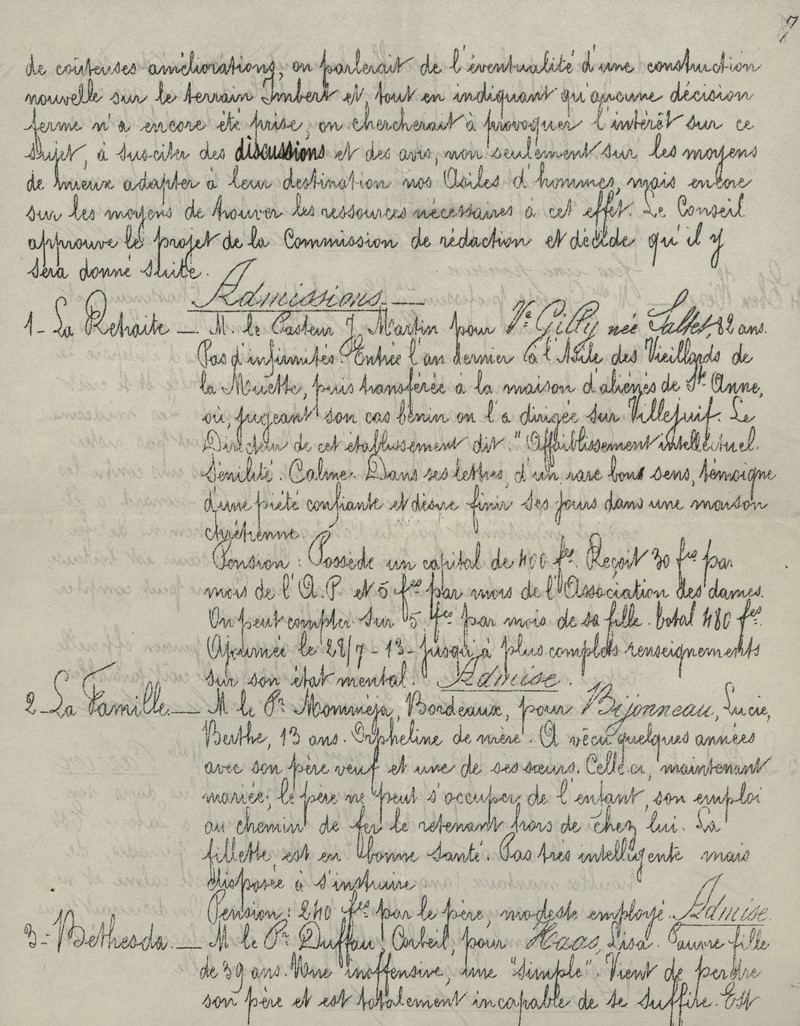 7
de coûteuses améliorations, on parlerait de l'éventualité d'une construction
nouvelle sur le terrain Imbert et, tout en indiquant qu'aucune décision
ferme n'a encore été prise, on chercherait à provoquer l'intérêt sur ce
sujet, à susciter des discussions et des avis, non seulement sur les moyens
de mieux adapter à leur destination nos Asiles d'hommes, mais encore
sur les moyens de trouver les ressources nécessaires à cet effet. Le Conseil
approuve le projet de la Commission de rédaction et décide qu'il y
sera donné suite.
Admissions
1- La Retraite — M. le Pasteur J. Martin pour Ve Gilly née Saltet, 82 ans.
Pas d'infirmités. Entrée l'an dernier à l'Asile des Vieillards de
la Muette, puis transférée à la maison d'aliénés de Ste Anne,
où, jugeant son cas bénin on l'a dirigée sur Villejuif. Le
Directeur de cet établissement dit : "Affaiblissement intellectuel.
Sénilité. Calme. Dans ses lettres, d'un rare bon sens, témoigne
d'une piété confiante et désire finir ses jours dans une maison
chrétienne.
Pension : Possède un capital de 400 fcs. Reçoit 30 fcs par
mois de l'A.P. et 5 fcs par mois de l'Association des dames.
On peut compter sur 5 fcs par mois de sa fille. total 480 fcs.
Ajournée le 28/7-13- jusqu'à plus complets renseignements
sur son état mental. Admise.
2- La Famille — M le Pr Momméja, Bordeaux, pour Bijonneau, Lucie,
Berthe, 13 ans. Orpheline de mère. A vécu quelques années
avec son père veuf et une de ses sœurs. Celle ci, maintenant
mariée; le père ne peut s'occuper de l'enfant, son emploi
au chemin de fer le retenant hors de chez lui. La
fillette est en bonne santé. Pas très intelligente mais
disposée à s'instruire
Pension : 240 fcs par le père, modeste employé. Admise.
3- Béthesda. — M le Pr Duffau, Corbeil, pour Haas, Lisa. Pauvre fille
de 39 ans. Une inoffensive, une "simple". Vient de perdre
son père et est totalement incapable de se suffire. Est